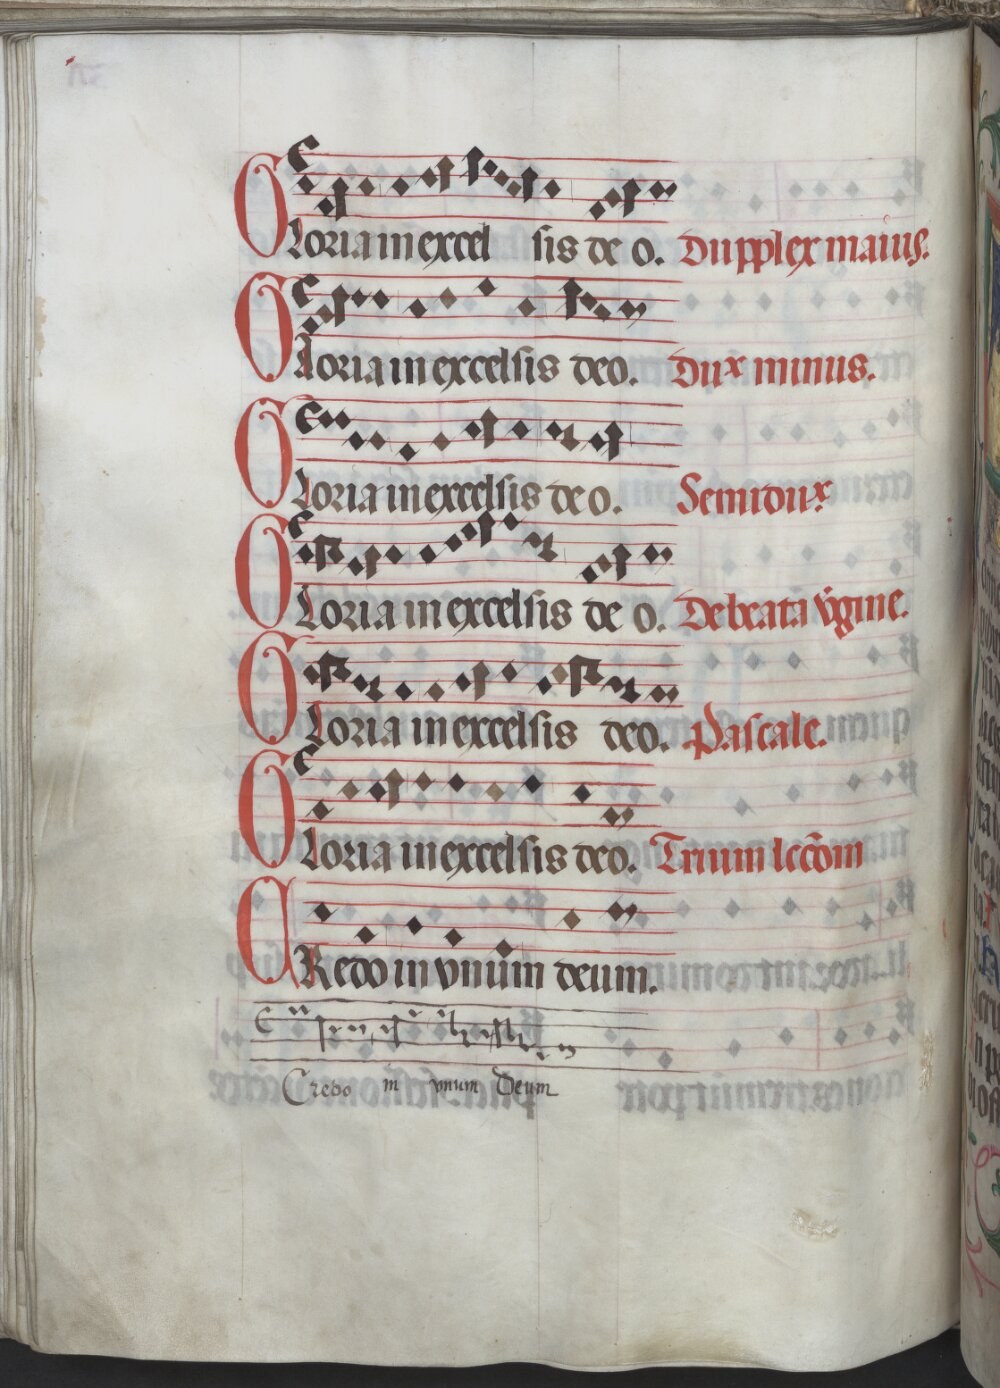 Gloria in excel sis de o. Dupplex maius.
Gloria in excelsis deo. Dux minus.
Gloria in excelsis de o. Semidux
Gloria in excelsis de o. De beata v̄gine.
Gloria in excelsis deo. Pascale.
Gloria in excelsis deo. Trium lcc̄om
CRedo in vnum deum.
Credo in vnum Deum